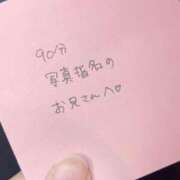 90分
写真指名の
お兄さんへ♡